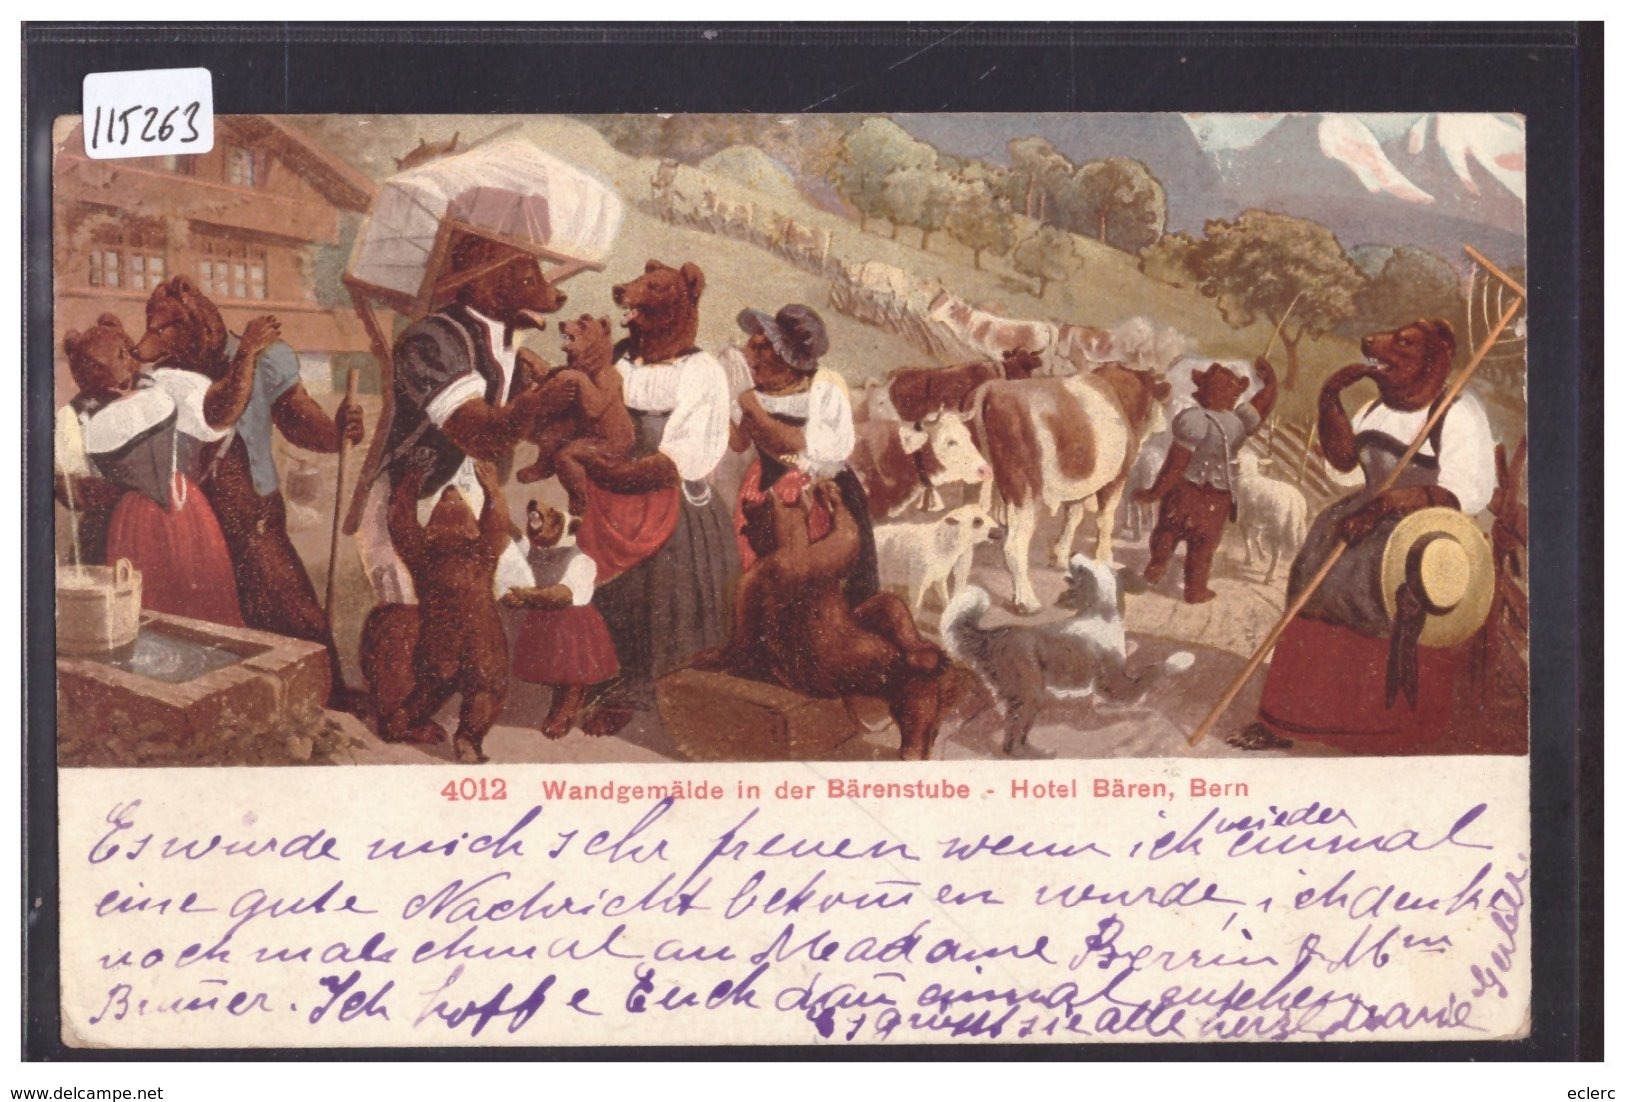 115263
4012 Wandgemälde in der Bärenstube - Hotel Bären, Bern
Es wurde mich sehr freuen wenn ich wieder einmal
eine gute Nachricht bekom̅en wurde, ich denke
noch manchmal an Madame Perrin & Mm
Brun̅er. Ich hoffe Euch dan̅ einmal
Es grüsst sie alle herzl Marie
Gerber
www.delcampe.net
eclerc